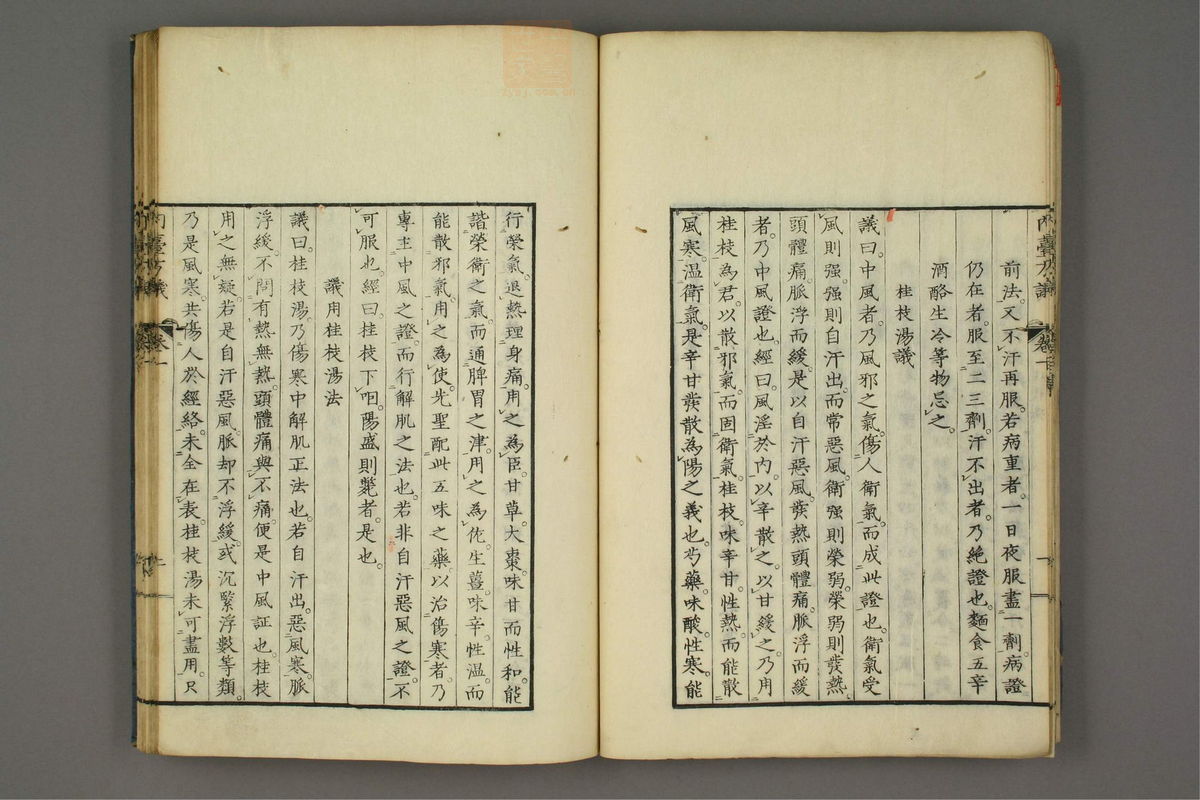 前法。又不汗再服。若病重者。一日夜服盡一劑。病證
仍在者。服至二三劑。汗不出者。乃絶證也。麵食五辛
酒酪生冷等物忌之。
桂枝湯議
議曰。中風者。乃風邪之氣。傷人衛氣。而成此證也。衛氣受
風則强。强則自汗出。而常惡風。衛强則榮弱。榮弱則發熱。
頭體痛。脈浮而緩。是以自汗惡風。發熱頭體痛。脈浮而緩
者。乃中風證也。經曰。風淫於內。以辛散之。以甘緩之。乃用
桂枝為君。以散邪氣。而固衛氣。桂枝。味辛甘。性熱。而能散
風寒。温衛氣。是辛甘發散為陽之義也。芍藥。味酸。性寒。能
行榮氣。退熱理身痛。用之為臣。甘草。大棗。味甘而性和。能
諧榮衛之氣。而通脾胃之津。用之為佐。生薑味辛性温。而
能散邪氣。用之為使。先聖配此五味之藥。以治傷寒者。乃
專主中風之證。而行解肌之法也。若非自汗惡風之證。不
可服也。經曰。桂枝下咽。陽盛則斃者。是也。
議用桂枝湯法
議曰。桂枝湯。乃傷寒中解肌正法也。若自汗出。惡風寒。脈
浮緩。不問有熱無熱。頭體痛與不痛。便是中風証也。桂枝
用之無疑。若是自汗惡風。脈却不浮緩。或沉緊浮數等類。
乃是風寒。共傷人於經絡。未全在表。桂枝湯未可盡用。只
內臺方議
卷一